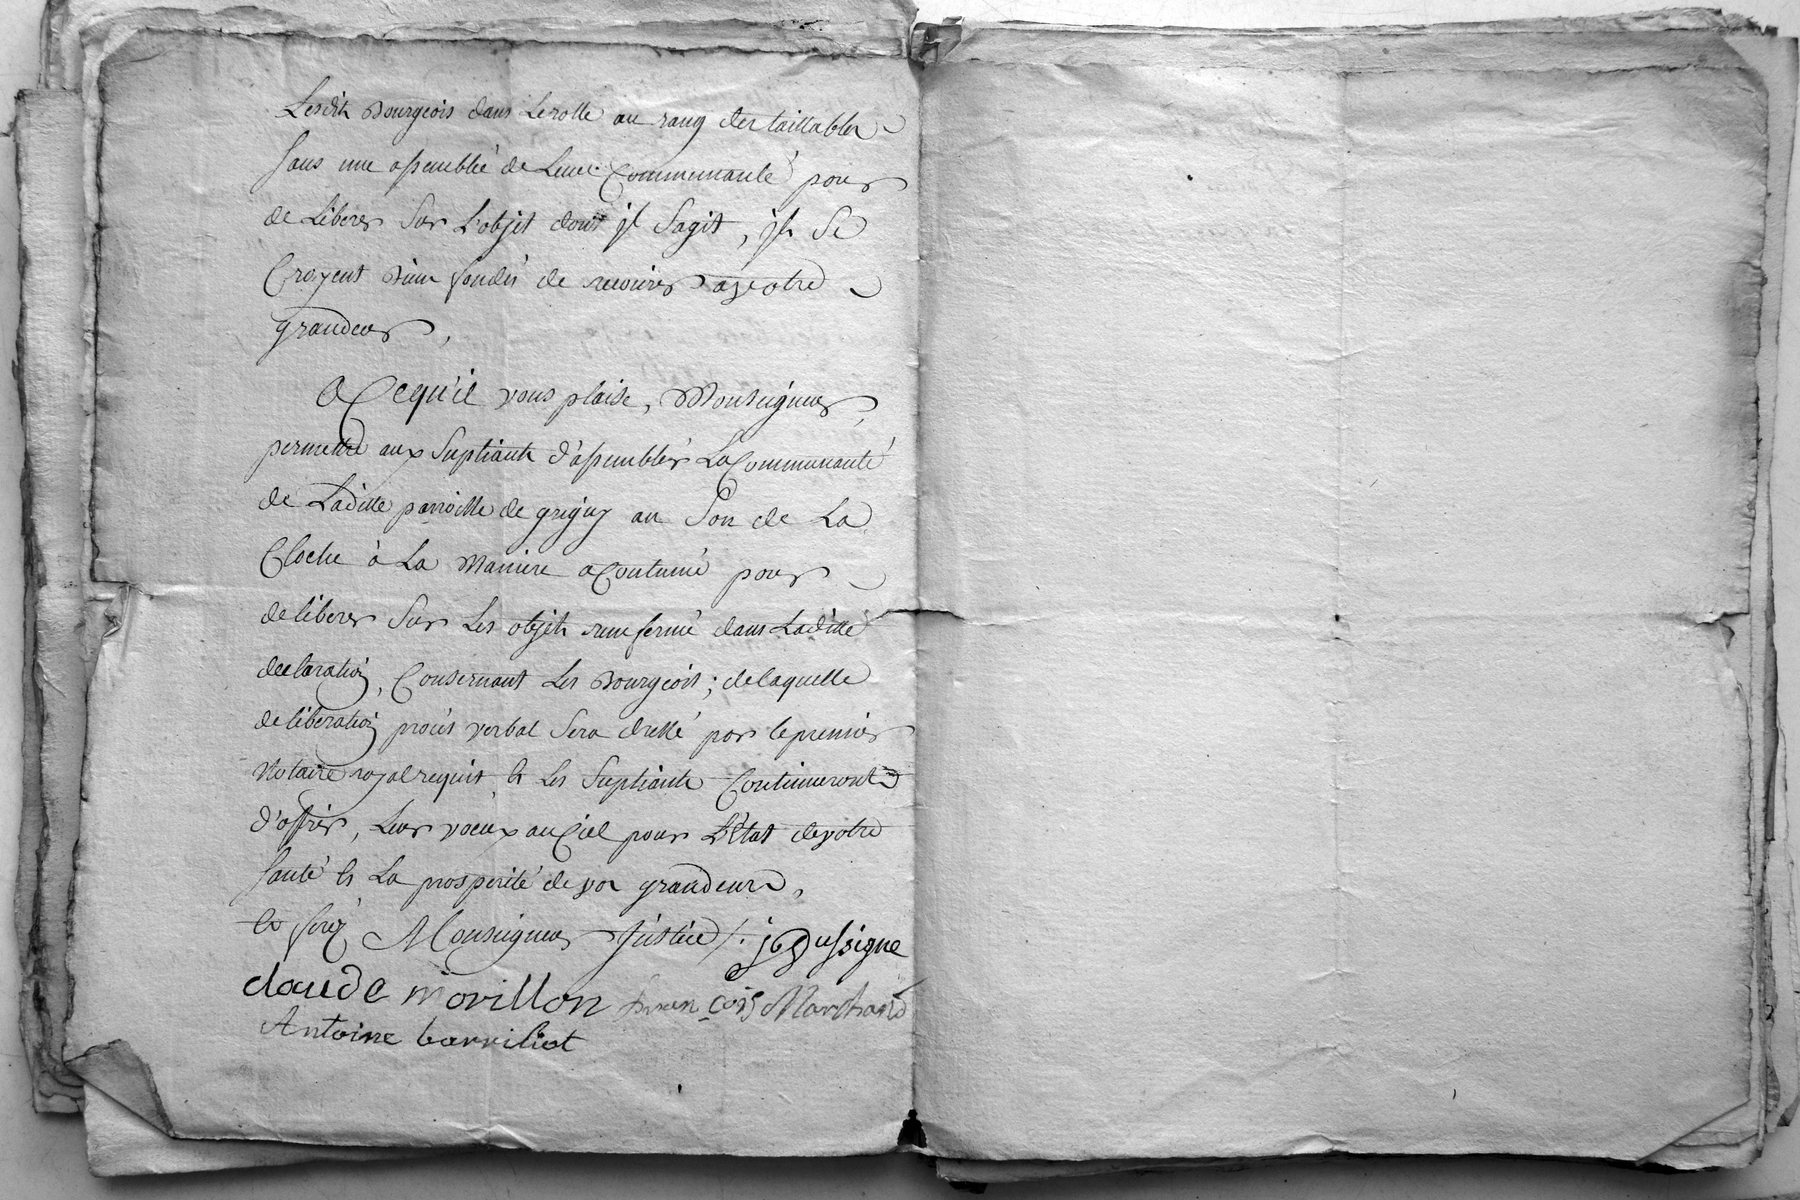 Lesdits Bourgeois dans Lerolle au rang des taillables
sans une assemblée de Leur Communauté pour
de Liberer sur L'objet dont jl sagit, jls se
Croyent bien fondés de recourir a votre
grandeur,
a Cequ'il vous plaise, Monseigneur,
permettre aux supliants d'assembler La Communauté
de Laditte parroisse de grigny au son de La
Cloche à La maniere acoutumé pour
deliberer sur Les objets renfermé dans Laditte
declaration, Consernant Les Bourgeois; delaquelle
deliberation procès verbal sera dressé par lepremier
Notaire royal requis, et Les supliants Continueront
d'offrir, Leur voeux au Ciel pour L'Etat devotre
santé et La prosperité de vos grandeurs,
et ferez Monseigneur justice /.
claude morillon françois Marchand
Antoine barriliot